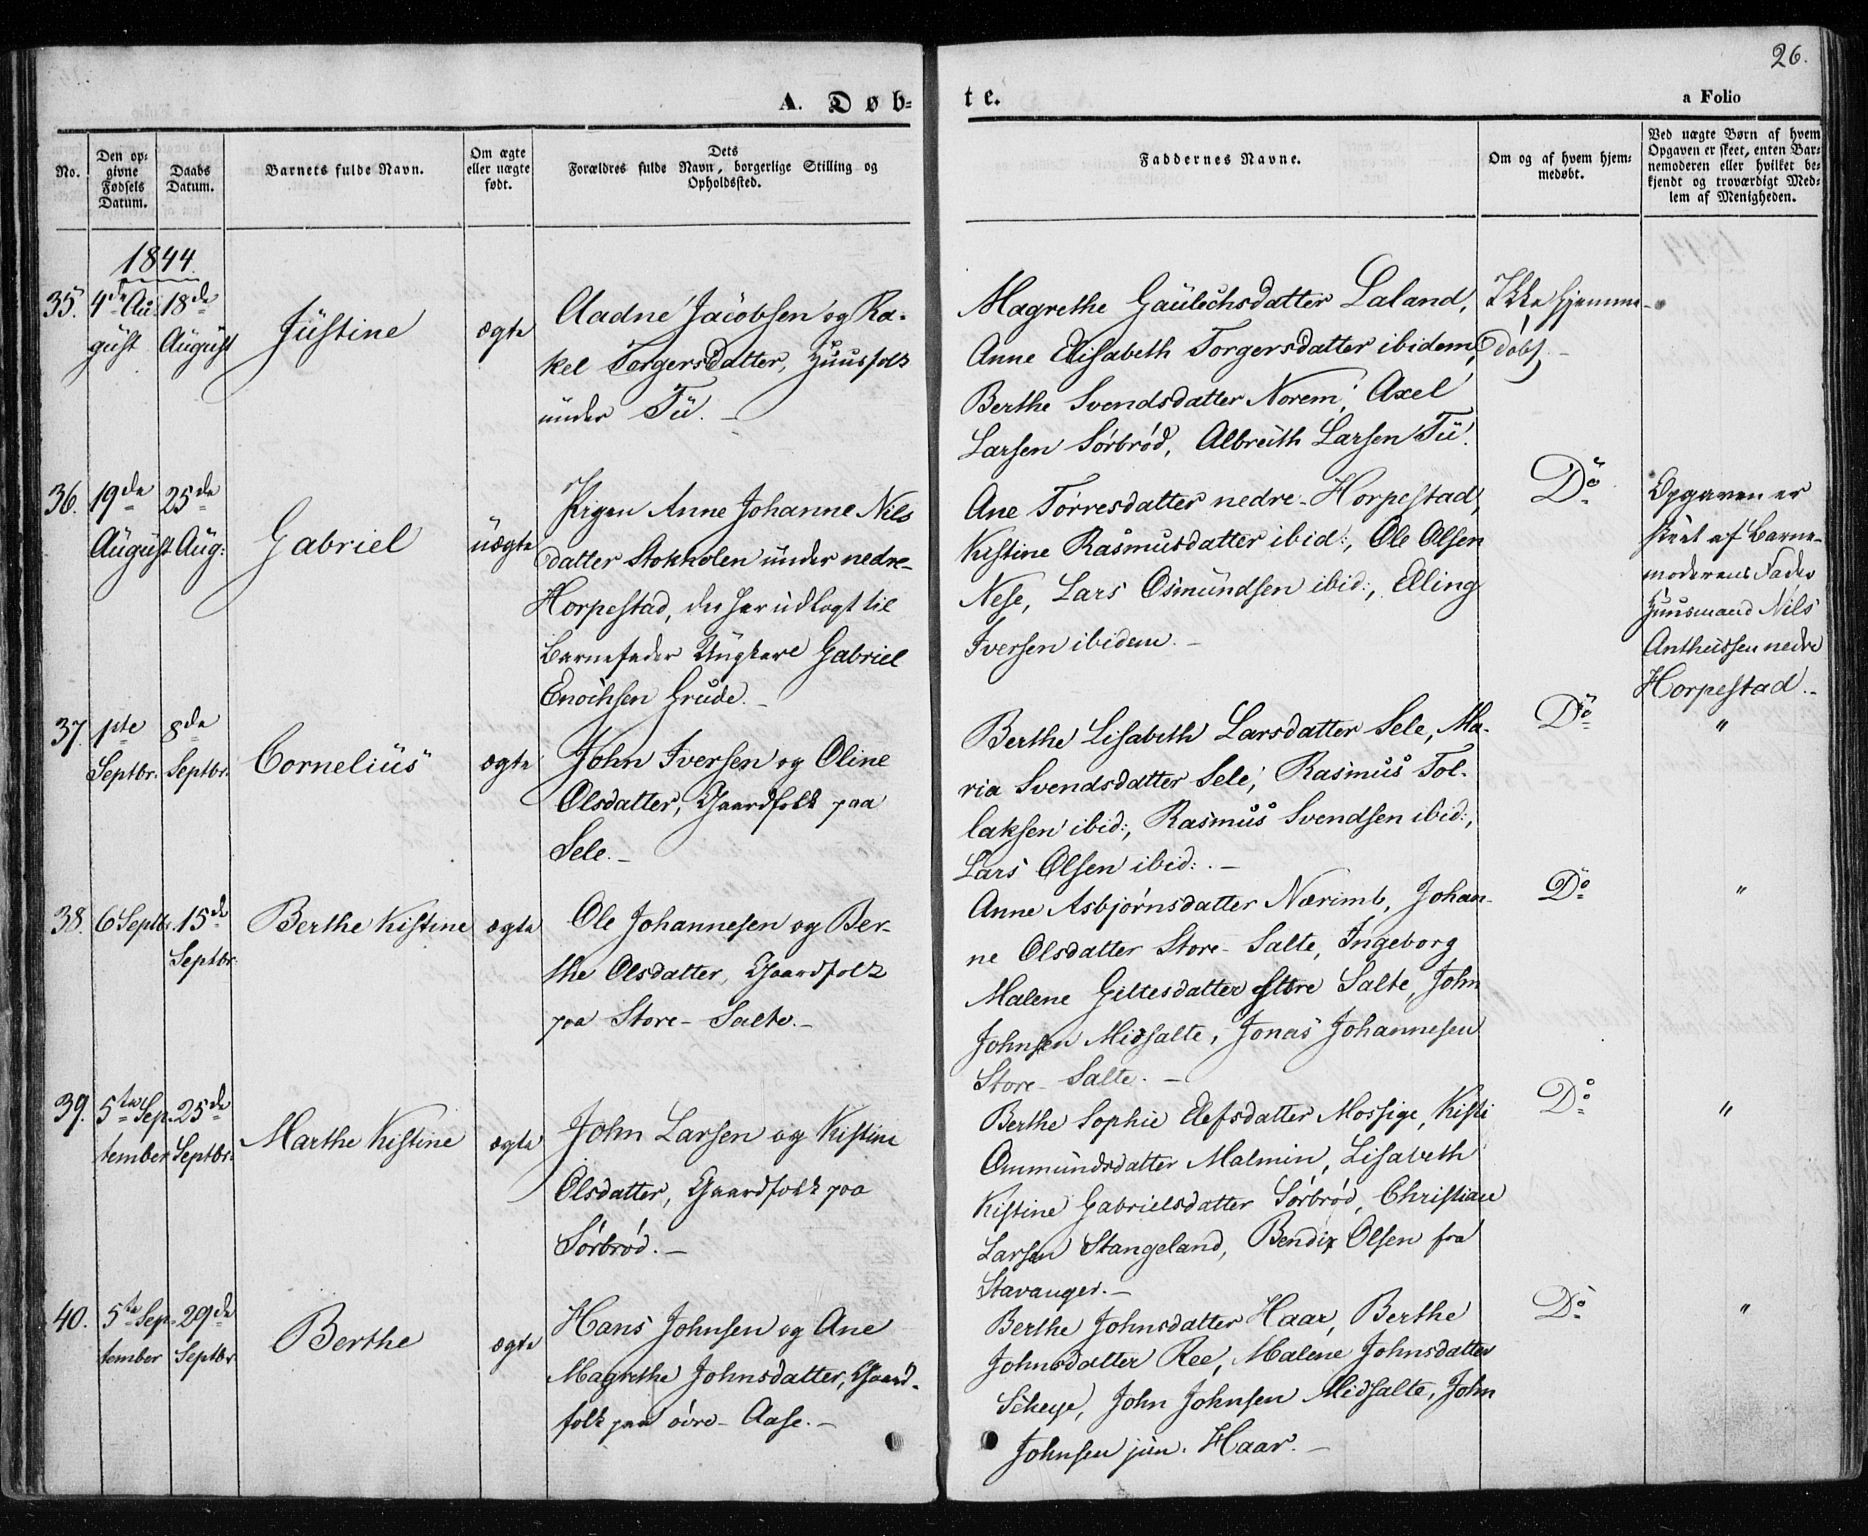 26.
A. Døb-
te.
a Folio
No.
Den op-
givne
Fødsels
Datum.
Daabs
Datum.
Barnets fulde Navn.
Om ægte
eller uægte
født.
Dets
Forældres fulde Navn, borgerlige Stilling og
Opholdssted.
Faddernes Navne.
Om og af hvem hjem-
medøbt.
Ved uægte Børn af hvem
Opgaven er skeet, enten Bar-
nemoderen eller hvilket be-
kjendt og troværdigt Med-
lem af Menigheden.
1844.
35.
4de Au-
gust
18de
August
Justine
ægte
Aadne Jacobsen og Ra-
kel Torgersdatter, Huusfolk
under Tu. –
Magrethe Gaulechsdatter Laland,
Anne Elisabeth Torgersdatter ibidem,
Berthe Svendsdatter Norem, Axel
Larsen Sørbrød, Albreith Larsen Tu.
Ikke hjemme-
døbt. –
36.
19de
August
25de
Aug:
Gabriel
uægte
Pigen Anne Johanne Nils
datter Stokholen under nedre-
Horpestad, der har udlagt til
Barnefader Ungkarl Gabriel
Enochsen Grude. –
Ane Tørresdatter nedre-Horpestad,
Kistine Rasmusdatter ibid:, Ole Olsen
Nese, Lars Osmundsen ibid:, Elling
Iversen ibidem. –
Do
Opgaven er
skeet af Barne-
moderens Fader
Huusmand Nils
Anthussen nedre
Horpestad. –
37.
1ste
Septbr.
8de
Septbr.
Cornelius
ægte
John Iversen og Oline
Olsdatter, Gaardfolk paa
Sele. –
Berthe Lisabeth Larsdatter Sele, Ma-
ria Svendsdatter Sele, Rasmus Tol-
laksen ibid:, Rasmus Svendsen ibid:,
Lars Olsen ibid: . –
Do
"
38.
6 Septbr.
15de
Septbr.
Berthe Kistine
ægte
Ole Johannesen og Ber-
the Olsdatter, Gaardfolk
paa Store-Salte. –
Anne Asbjørnsdatter Nærimb, Johan-
ne Olsdatter Store-Salte, Ingeborg
Malene Giltesdatter Store Salte, John
Johnsen Midsalte, Jonas Johannesen
Store-Salte. –
Do
"
39.
5te Sep-
tember
25de
Septbr.
Marthe Kistine
ægte
John Larsen og Kistine
Olsdatter, Gaardfolk paa
Sørbrød. –
Berthe Sophie Elefsdatter Mossige, Kisti
Ommundsdatter Malmin, Lisabeth
Kistine Gabrielsdatter Sørbrød, Christian
Larsen Stangeland, Bendix Olsen fra
Stavanger. –
Do
"
40.
5te Sep-
tember
29de
Septbr.
Berthe
ægte
Hans Johnsen og Ane
Magrethe Johnsdatter, Gaard-
folk paa øvre-Aase. –
Berthe Johnsdatter Haar, Berthe
Johnsdatter Ree, Malene Johnsdatter
Scheye, John Johnsen Midsalte, John
Johnsen jun. Haar. –
Do
"